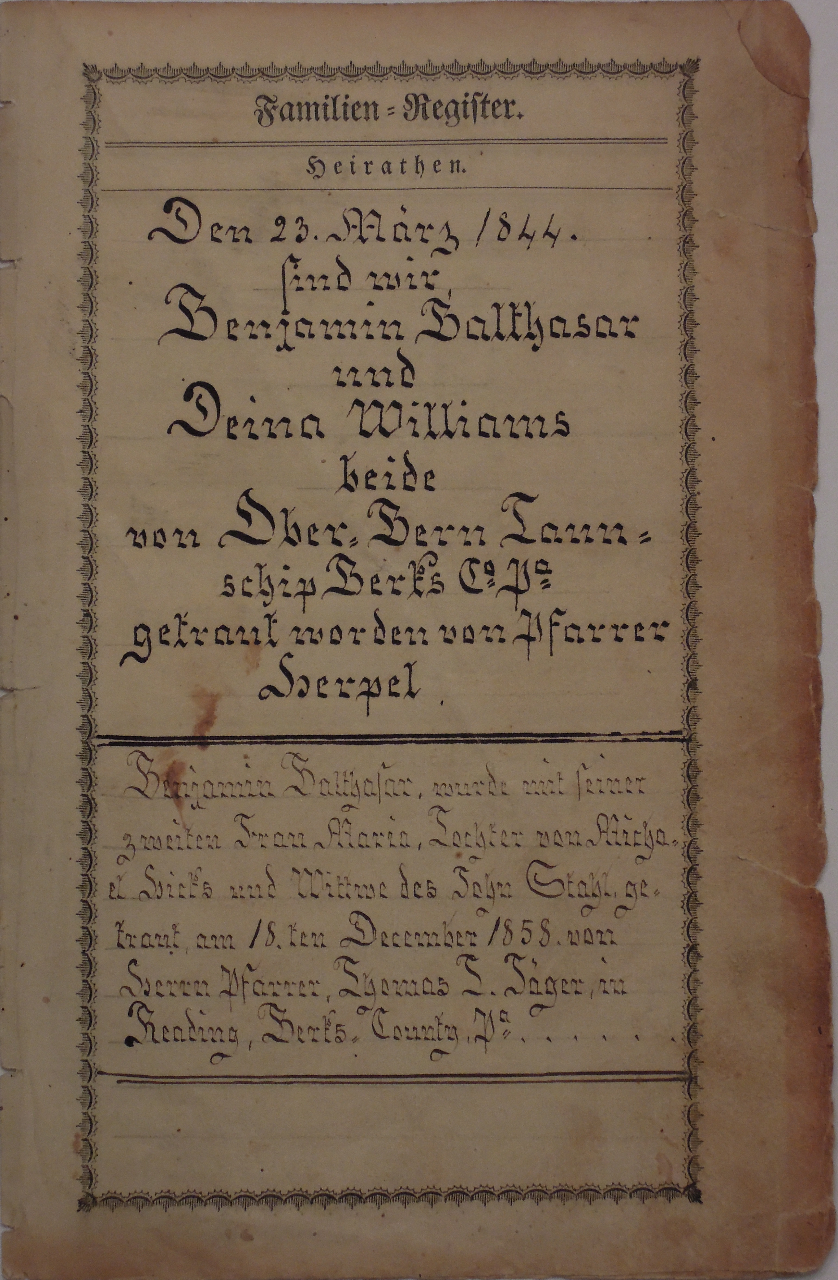 Familien-Register.
Heirathen.
Den 23. März 1844.
sind wir,
Benjamin Balthasar
und
Deina Williams
beide
von Ober-Bern Taun-
schip Berks Co. Pa.
getraut worden von Pfarrer
Herpel
Benjamin Balthasar, wurde mit seiner
zweiten Frau Maria, Tochter von Micha-
el Hicks und Wittwe des John Stahl, ge-
traut, am 18.ten December 1858. von
Herrn Pfarrer, Thomas T. Jäger, in
Reading, Berks-County, Pa. . . . . .